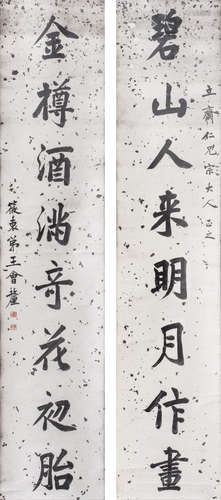 立齋仁兄宗大人正之
碧山人来明月作畫
金樽酒滿奇花初胎
王會釐